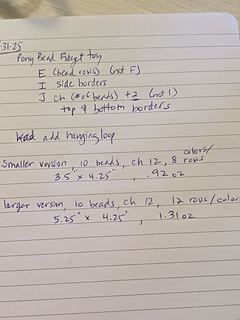 31.25
Pony Bead Fidget toy
E (bead rows) (not F)
I side borders
J ch (# of beads) +2 (not 1)
top & bottom borders
add hanging loop
Smaller version, 10 beads, ch 12, 8 colors/rows
3.5" x 4.25", .92 oz
larger version, 10 beads, ch 12, 12 rows/color
5.25" x 4.25", 1.31 oz